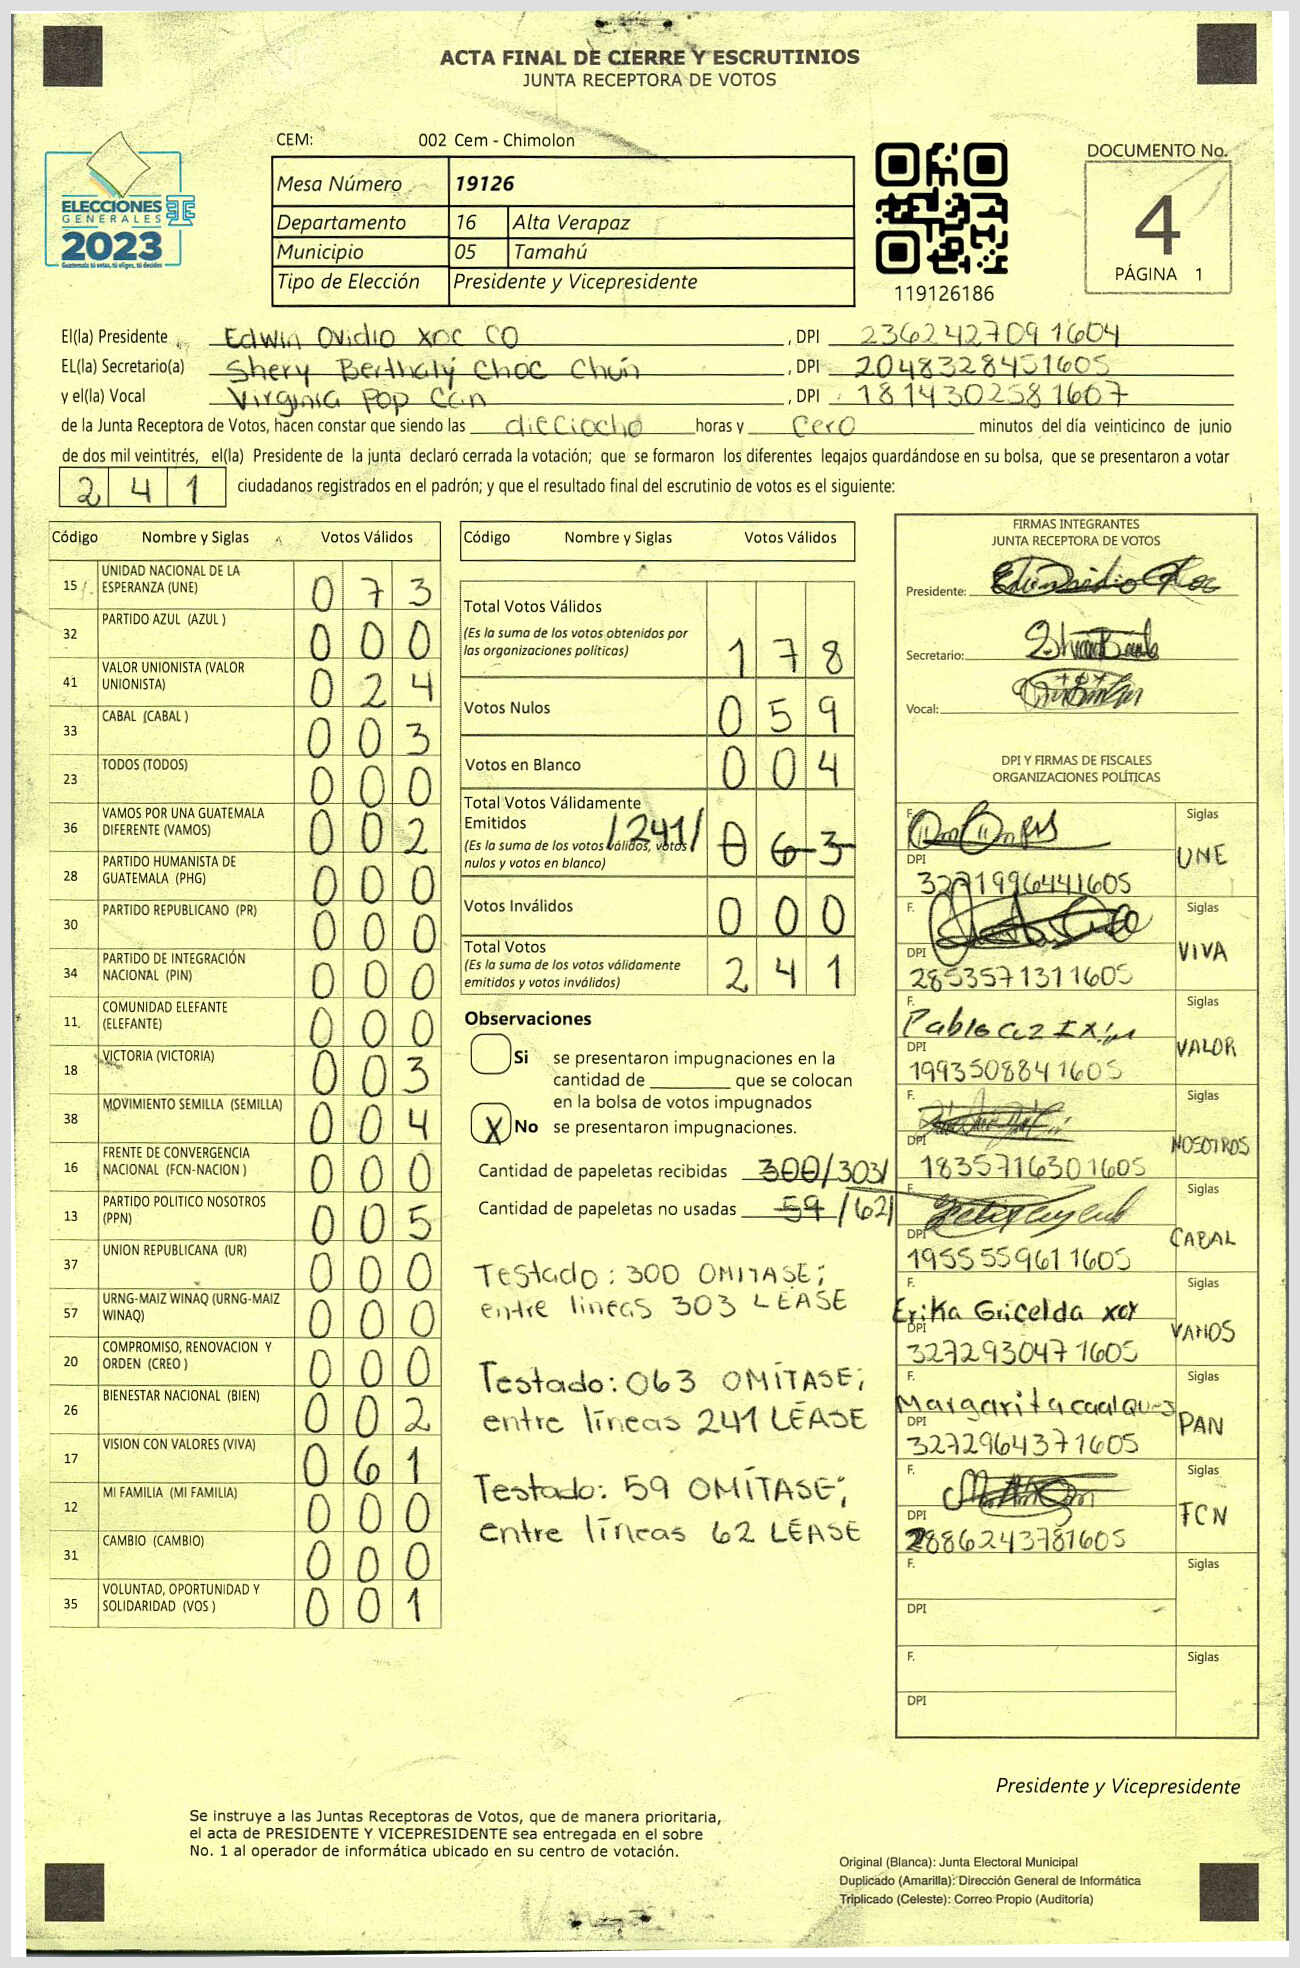 ACTA FINAL DE CIERRE Y ESCRUTINIOS
JUNTA RECEPTORA DE VOTOS
CEM: 002 Cem - Chimolon
ELECCIONES
GENERALES
2023
Guatemala tú votas, tú eliges, tú decides
Mesa Número 19126
Departamento 16 Alta Verapaz
Municipio 05 Tamahú
Tipo de Elección Presidente y Vicepresidente
119126186
DOCUMENTO No.
4
PÁGINA 1
El(la) Presidente Edwin Ovidio Xoc CO , DPI 2362427091604
EL(la) Secretario(a) Shery Berthaly Choc Chún , DPI 2048328451605
y el(la) Vocal Virginia Pop Can , DPI 1814302581607
de la Junta Receptora de Votos, hacen constar que siendo las dieciocho horas y cero minutos del día veinticinco de junio
de dos mil veintitrés, el(la) Presidente de la junta declaró cerrada la votación; que se formaron los diferentes legajos guardándose en su bolsa, que se presentaron a votar
241 ciudadanos registrados en el padrón; y que el resultado final del escrutinio de votos es el siguiente:
Código Nombre y Siglas Votos Válidos
15 UNIDAD NACIONAL DE LA ESPERANZA (UNE) 073
32 PARTIDO AZUL (AZUL ) 000
41 VALOR UNIONISTA (VALOR UNIONISTA) 024
33 CABAL (CABAL ) 003
23 TODOS (TODOS) 000
36 VAMOS POR UNA GUATEMALA DIFERENTE (VAMOS) 002
28 PARTIDO HUMANISTA DE GUATEMALA (PHG) 000
30 PARTIDO REPUBLICANO (PR) 000
34 PARTIDO DE INTEGRACIÓN NACIONAL (PIN) 000
11 COMUNIDAD ELEFANTE (ELEFANTE) 000
18 VICTORIA (VICTORIA) 003
38 MOVIMIENTO SEMILLA (SEMILLA) 004
16 FRENTE DE CONVERGENCIA NACIONAL (FCN-NACION ) 000
13 PARTIDO POLITICO NOSOTROS (PPN) 005
37 UNION REPUBLICANA (UR) 000
57 URNG-MAIZ WINAQ (URNG-MAIZ WINAQ) 000
20 COMPROMISO, RENOVACION Y ORDEN (CREO ) 000
26 BIENESTAR NACIONAL (BIEN) 002
17 VISION CON VALORES (VIVA) 061
12 MI FAMILIA (MI FAMILIA) 000
31 CAMBIO (CAMBIO) 000
35 VOLUNTAD, OPORTUNIDAD Y SOLIDARIDAD (VOS ) 001
Código Nombre y Siglas Votos Válidos
Total Votos Válidos
(Es la suma de los votos obtenidos por las organizaciones políticas) 178
Votos Nulos 059
Votos en Blanco 004
Total Votos Válidamente Emitidos /241/
(Es la suma de los votos válidos, votos nulos y votos en blanco) 063
Votos Inválidos 000
Total Votos
(Es la suma de los votos válidamente emitidos y votos inválidos) 241
Observaciones
Si se presentaron impugnaciones en la
cantidad de ________ que se colocan
en la bolsa de votos impugnados
X No se presentaron impugnaciones.
Cantidad de papeletas recibidas 300/303/
Cantidad de papeletas no usadas 59/62/
Testado: 300 OMITASE;
entre lineas 303 LEASE
Testado: 063 OMÍTASE;
entre líneas 241 LÉASE
Testado: 59 OMÍTASE;
entre líneas 62 LÉASE
FIRMAS INTEGRANTES
JUNTA RECEPTORA DE VOTOS
Presidente:
Secretario:
Vocal:
DPI Y FIRMAS DE FISCALES
ORGANIZACIONES POLÍTICAS
F. Siglas
DPI 3271996441605 UNE
F. Siglas
DPI 2853571311605 VIVA
F. Pablo Siglas
DPI 1993508841605 VALOR
F. Siglas
DPI 1835716301605 NOSOTROS
F. Siglas
DPI 1955559611605 CABAL
F. Erika Gricelda Siglas
DPI 3272930471605 VAMOS
F. Margarita Siglas
DPI 3272964371605 PAN
F. Siglas
DPI 2886243781605 FCN
F. Siglas
DPI
F. Siglas
DPI
Presidente y Vicepresidente
Se instruye a las Juntas Receptoras de Votos, que de manera prioritaria,
el acta de PRESIDENTE Y VICEPRESIDENTE sea entregada en el sobre
No. 1 al operador de informática ubicado en su centro de votación.
Original (Blanca): Junta Electoral Municipal
Duplicado (Amarilla): Dirección General de Informática
Triplicado (Celeste): Correo Propio (Auditoría)